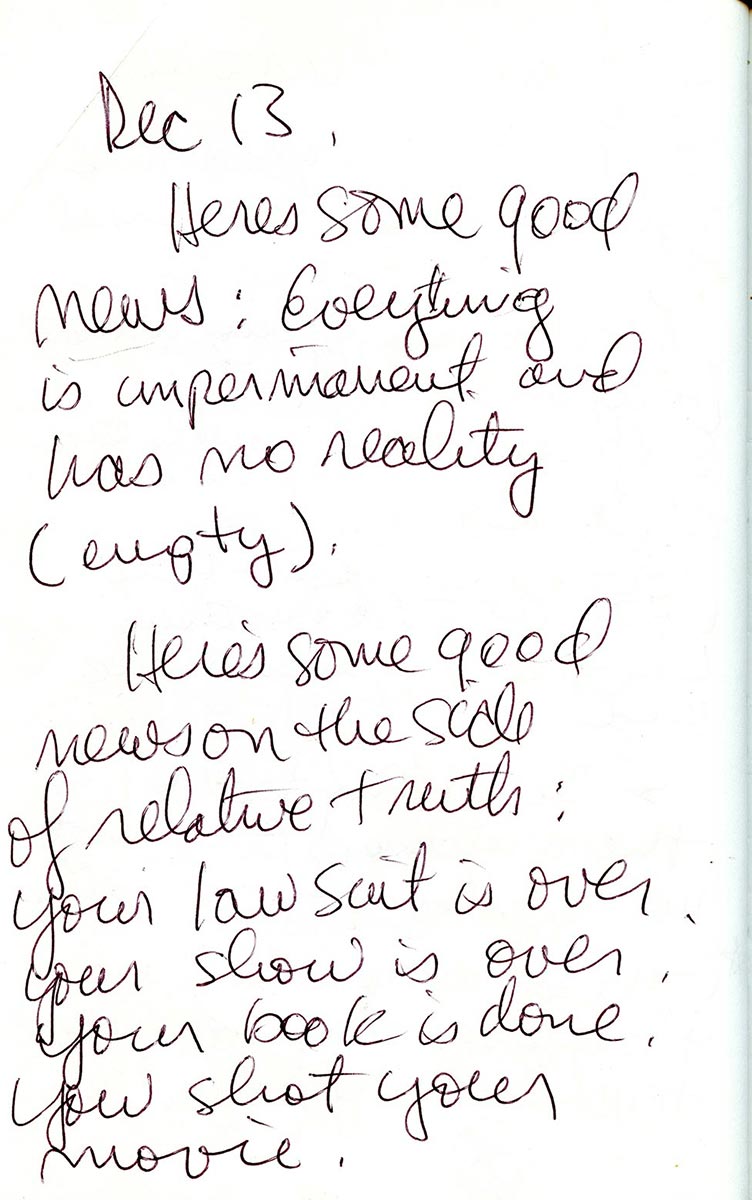 Dec 13.
Heres some good
news: Everything
is impermanent and
has no reality
(empty).
Here's some good
news on the side
of relative truth:
your lawsuit is over.
your show is over.
your book is done.
You shot your
movie.